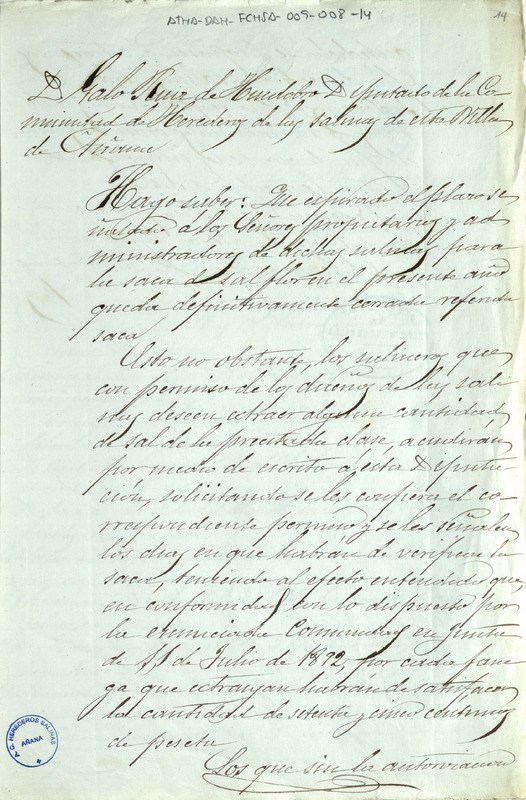 ATHA-DAH-FCHSA-009-008-14
14
D. Galo Ruiz de Huidobro Diputado de la Co-
munidad de Herederos de las salinas de esta Villa
de Añana
Hago saber: Que espirado el plazo se-
ñalado á los Señores propietarios y ad-
ministradores de dichas salinas para
la saca de sal flor en el presente año
queda definitivamente cerrada referida
saca.
Esto no obstante, los salineros que
con permiso de los dueños de las sali-
nas deseen extraer alguna cantidad
de sal de la precitada clase, acudirán
por medio de escrito a esta Diputa-
ción, solicitando se les confiera el co-
rrespondiente permiso y se les señalen
los dias en que habrán de verificar la
saca, teniendo al efecto entendido que,
en conformidad con lo dispuesto por
la enunciada Comunidad en junta
de 11 de Julio de 1892, por cada fane-
ga que extraigan habrán de satisfacer
la cantidad de setenta y cinco centimos
de peseta
Los que sin la autorización
C. HEREDEROS SALINAS
AÑANA